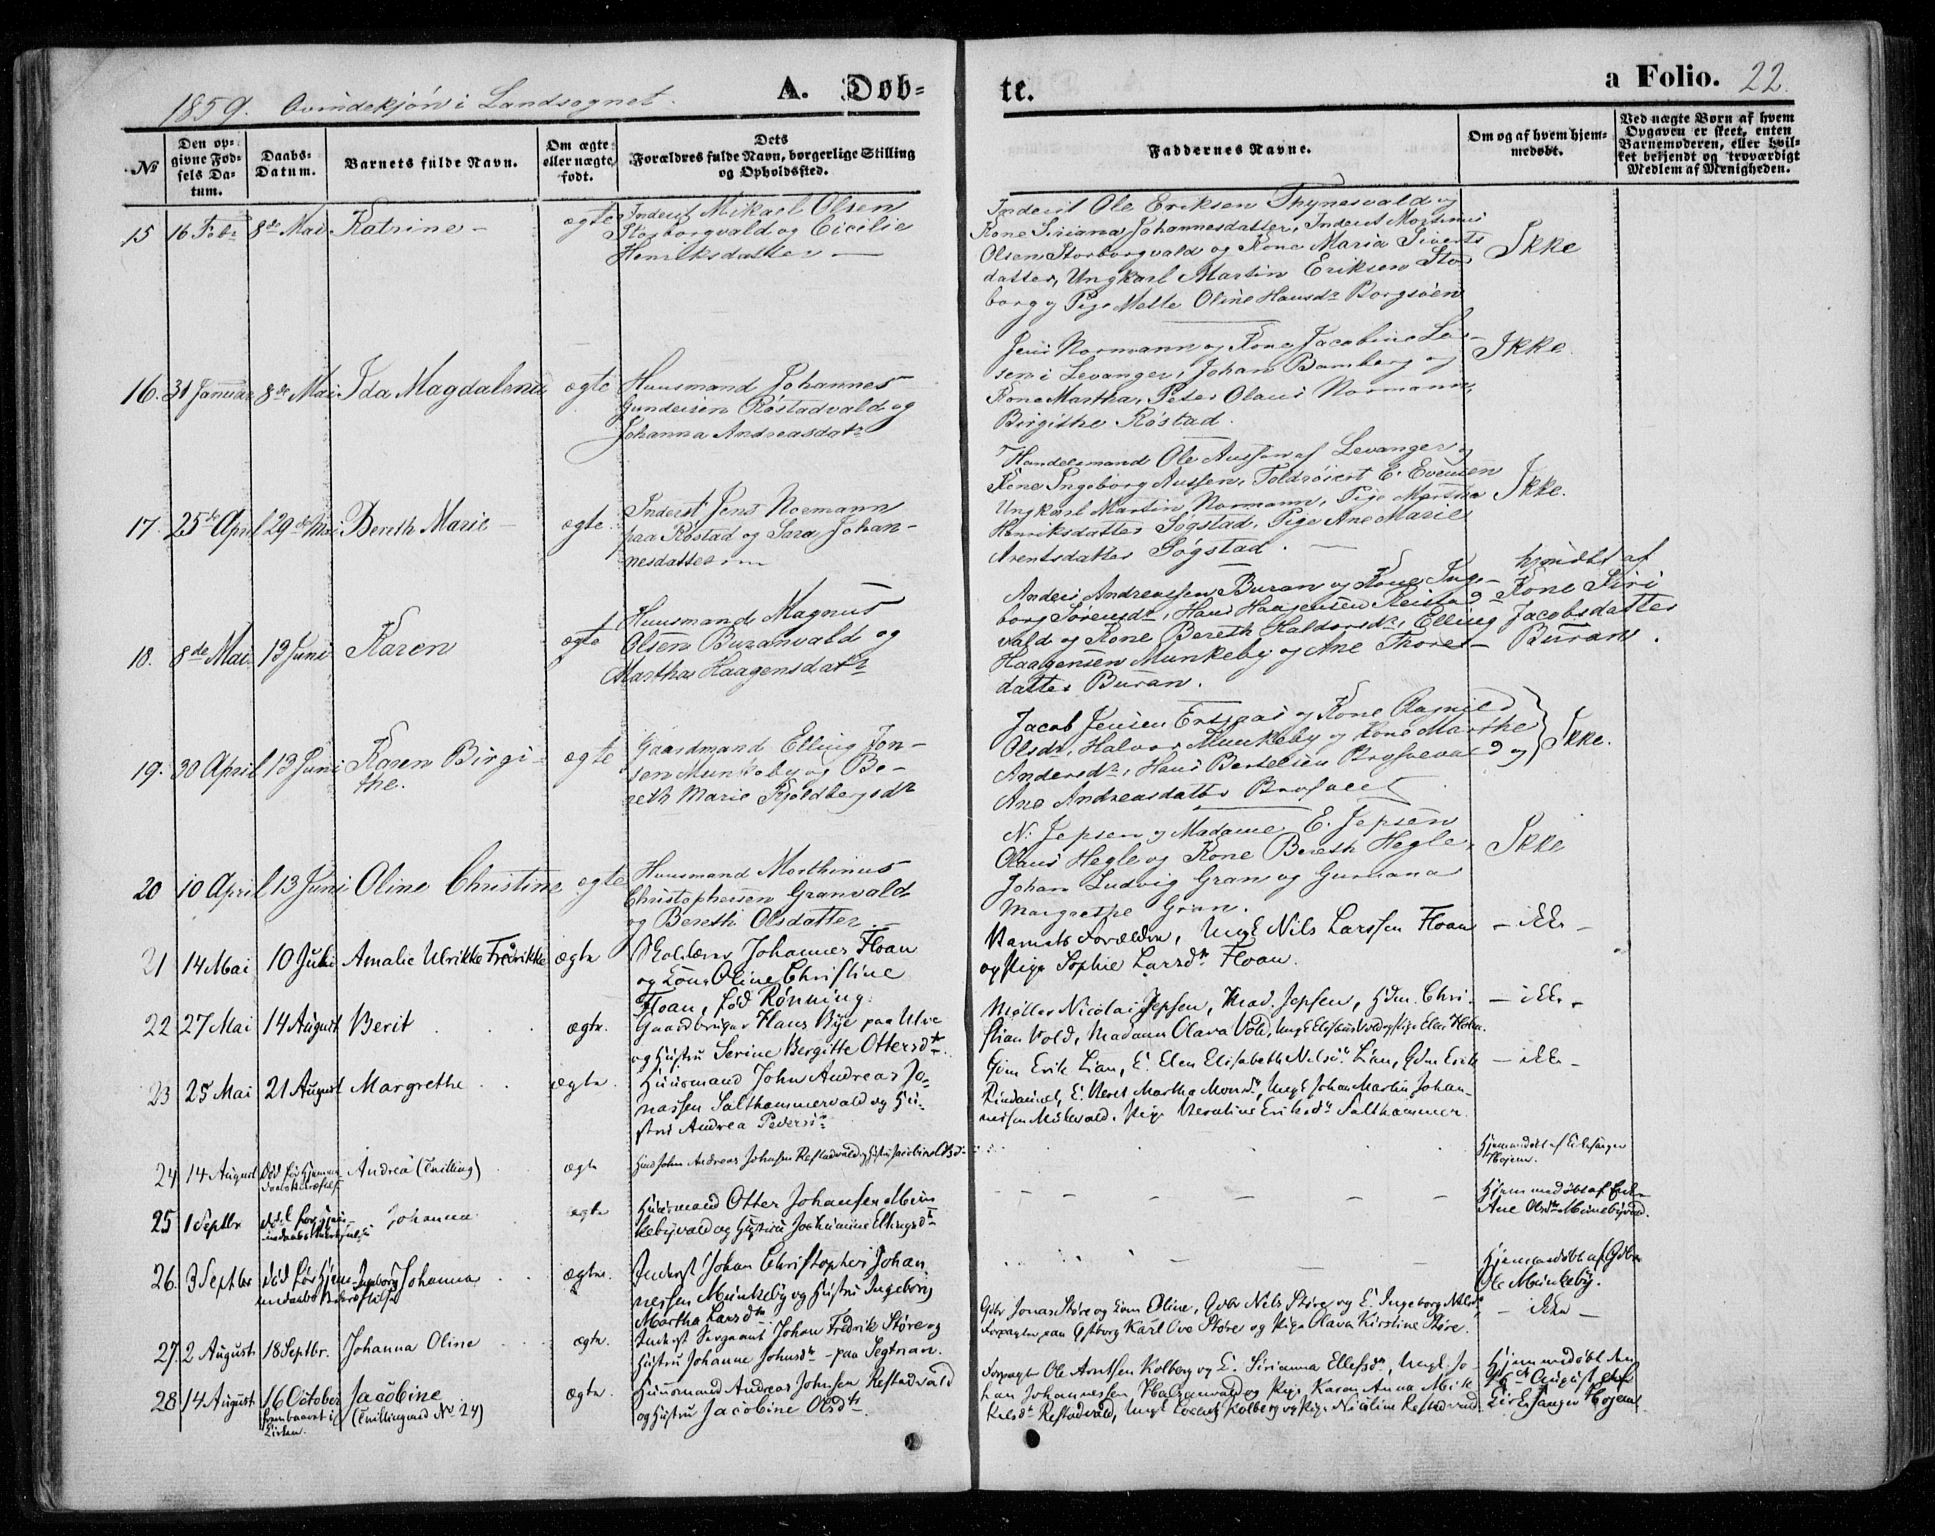 1859. Qvindekjön i Landsognet.
A. Døb-
te.
a Folio. 22.
№
Den op-
givne Fød-
sels Da-
tum.
Daabs-
Datum.
Barnets fulde Navn.
Om ægte
eller uægte
født.
Dets
Forældres fulde Navn, borgerlige Stilling
og Opholdssted.
Faddernes Navne.
Om og af hvem hjem-
medøbt.
Ved uægte Børn af hvem
Opgaven er skeet, enten
Barnemoderen, eller hvil-
ket bekjendt og troværdigt
Medlem af Menigheden.
15 16 Febr 8de Mai Katrine - ægte
Inderst Mikael Olsen
Storborgvald og Cicilie
Henriksdatter
Inderst Ole Eriksen Thynesvald og
Kone Siriana Johannesdatter, Inderst Morthinus
Olsen Storborgvald og Kone Maria Siverts
datter, Ungkarl Martin Eriksen Stor
borg og Pige Mette Oline Hansdr Borgsöen
Ikke
16. 31 Januar 8de Mai Ida Magdalena ægte
Huusmand Johannes
Gundersen Röstadvald og
Johanna Andreasdatr
Jens Normann og Kone Jacobine Lar-
sen i Levanger, Johan Bamberg og
Kone Martha, Peter Olaus Normann,
Birgithe Röstad.
Ikke.
17. 25de April 29de Mai Bereth Marie - ægte.
Inderst Jens Normann
paa Röstad og Sara Johan-
nesdatter
Handelsmand Ole Aussen af Levanger og
Kone Ingeborg Aussen, Toldröiert E. Evensen
Ungkarl Martin Normann, Pige Martha
Henriksdatter Sögstad, Pige Ane Marie
Arentsdatter Sögstad.
Ikke.
18. 8de Mai 13 Juni Karen ægte
Huusmand Magnus
Olsen Buranvald og
Martha Haagensdatr
Anders Andreassen Buran og Kone Inge-
borg Sörensdr, Hans Haagensen Reistad-
vald og Kone Bereth Haldorsdr, Elling
Haagensen Munkeby og Ane Thores-
datter Buran.
hjmdbt af
Kone Siri
Jacobsdatter
Buran.
19. 30 April 13 Juni Karen Birgi-
the. ægte
Gaardmand Elling Jon-
sen Munkeby og Be-
reth Marie Kjeldbergsdr
Jacob Jensen Ertzaas og Kone Ragnild
Olsdr, Halvor Munkeby og Kone Marthe
Andersdr, Hans Bertelsen og
Ane Andreasdatter
Ikke.
20 10 April 13 Juni Oline Christine ægte
Huusmand Morthinus
Christophersen Granvald
og Bereth Olsdatter
N. Jepsen og Madame E. Jepsen
Olaus Hegle og Kone Bereth Hegle,
Johan Ludvig Gran og Gurnana
Margrethe Gran.
Ikke
21 14 Mai 10 Juli Amalie Ulrikke Fredrikke ægte
Skolelærer Johannes Floan
og Kone Oline Christine
Floan, föd Rönning.
Barnets Forældre, Ungk Nils Larssen Floan
og Pige Sophie Larsdtr Floan.
- ikke -
22 27 Mai 14 August Berit ægte.
Gaardbruger Hans Bye paa Ulve
og Hustru Serine Bergitte Ottersdtr
Møller Nicolai Jepsen, Mad. Jepsen, Hdm. Chri-
stian Vold, Madame Olava Vold, Ungk Elisæus Vold og Pige Elen Holan.
- ikke -
23 25 Mai 21 August Margrethe ægte.
Huusmand John Andreas Jo-
nassen Salthammervald og Hu-
stru Andrea Pedersdr
Gdm Erik Lian, K. Elen Elisabeth Nilsdr Lian, Gdm Erik
Rindsimet, K. Beret Martha Monsdr, Ungk Johan Martin Johan-
nessen Mülevald, Pige Beratine Eriksdr Salthammer.
- ikke -
24 14 August Död før Hjemme-
daabs Bekræftelse Andrea (Tvilling) ægte
Husm John Andreas Johnsen Restadvald og Hustru Jacobine Olsdr
Hjemmedøbt af Kirkesanger
Højem.
25 1 Septbr død før Hjem-
medaabs Bekræftelse Johanna ægte
Huusmand Otter Johansen Mün-
kebyvald og Hustru Jochumine Ellingsdtr
Hjemmedøbt af Enke
Ane Olsdtr Münkebyvald.
26. 3 Septbr død før Hjem-
medaabs Bekræftelse Ingeborg Johanna ægte.
Inderst Johan Christopher Johan
nessen Münkeby og Hustru Ingeborg
Martha Larsdtr
Hjemmedøbt af Gdbr
Ole Münkeby.
27. 2 August 18 Septbr. Johanna Oline ægte.
Inderst Sergeant Johan Fredrik Støre og
Hustru Johanne Johnsdtr paa Segtnan.
Gdbr Jonas Støre og Kone Oline, Gdbr Nils Støre og K. Ingeborg Nilsdr,
Forpagter paa Gjeborg Karl Ove Støre og Pige Olava Kirstine Støre.
- ikke -
28 14 August 16 October
frembaaret i
Kirken. Jacobine
(Tvilling med № 24) ægte
Huusmand Andreas Johnsen Restadvald
og Hustru Jacobine Olsdtr
Forpagter Ole Arntsen Kolberg og K. Sirianna Ellefsdtr, Ungk. Jo-
han Johannessen Halsanvald og Pige Karen Anna Mik-
kelsdr Restadvald, Ungk Lorentz Kolberg og Pige Nicoline Restadvald
Hjemmedøbt den
16de August af
Kirkesanger Højem